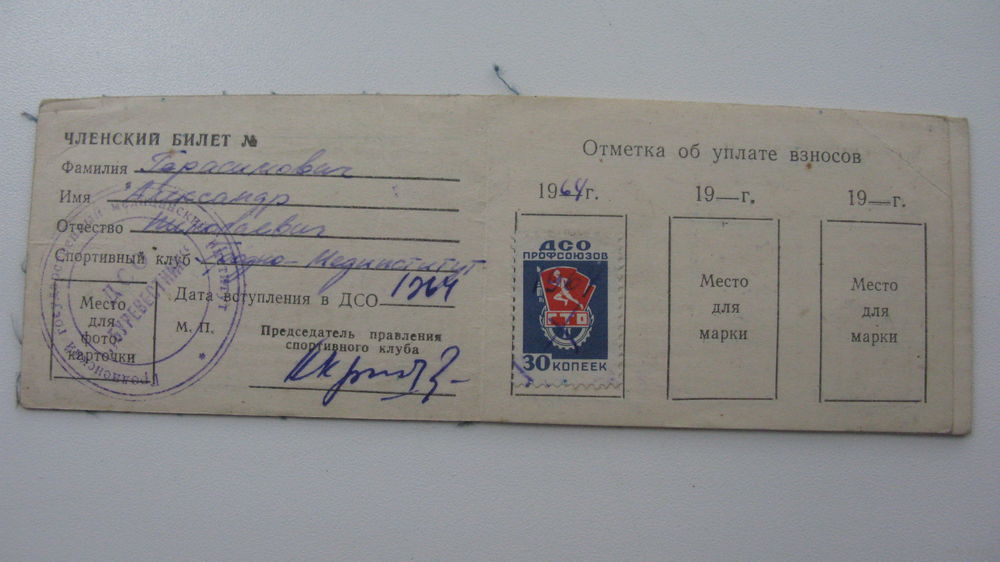 ЧЛЕНСКИЙ БИЛЕТ №
Фамилия Герасимович
Имя Александр
Отчество Николаевич
Спортивный клуб Гродно-Мединститут
Дата вступления в ДСО 1964
Место
для
фото-
карточки
М. П.
Председатель правления
спортивного клуба
Гродненский государственный медицинский институт
ДСО
"БУРЕВЕСТНИК"
Отметка об уплате взносов
1964г.
19—г.
19—г.
ДСО
ПРОФСОЮЗОВ
ГТО
30 КОПЕЕК
Место
для
марки
Место
для
марки